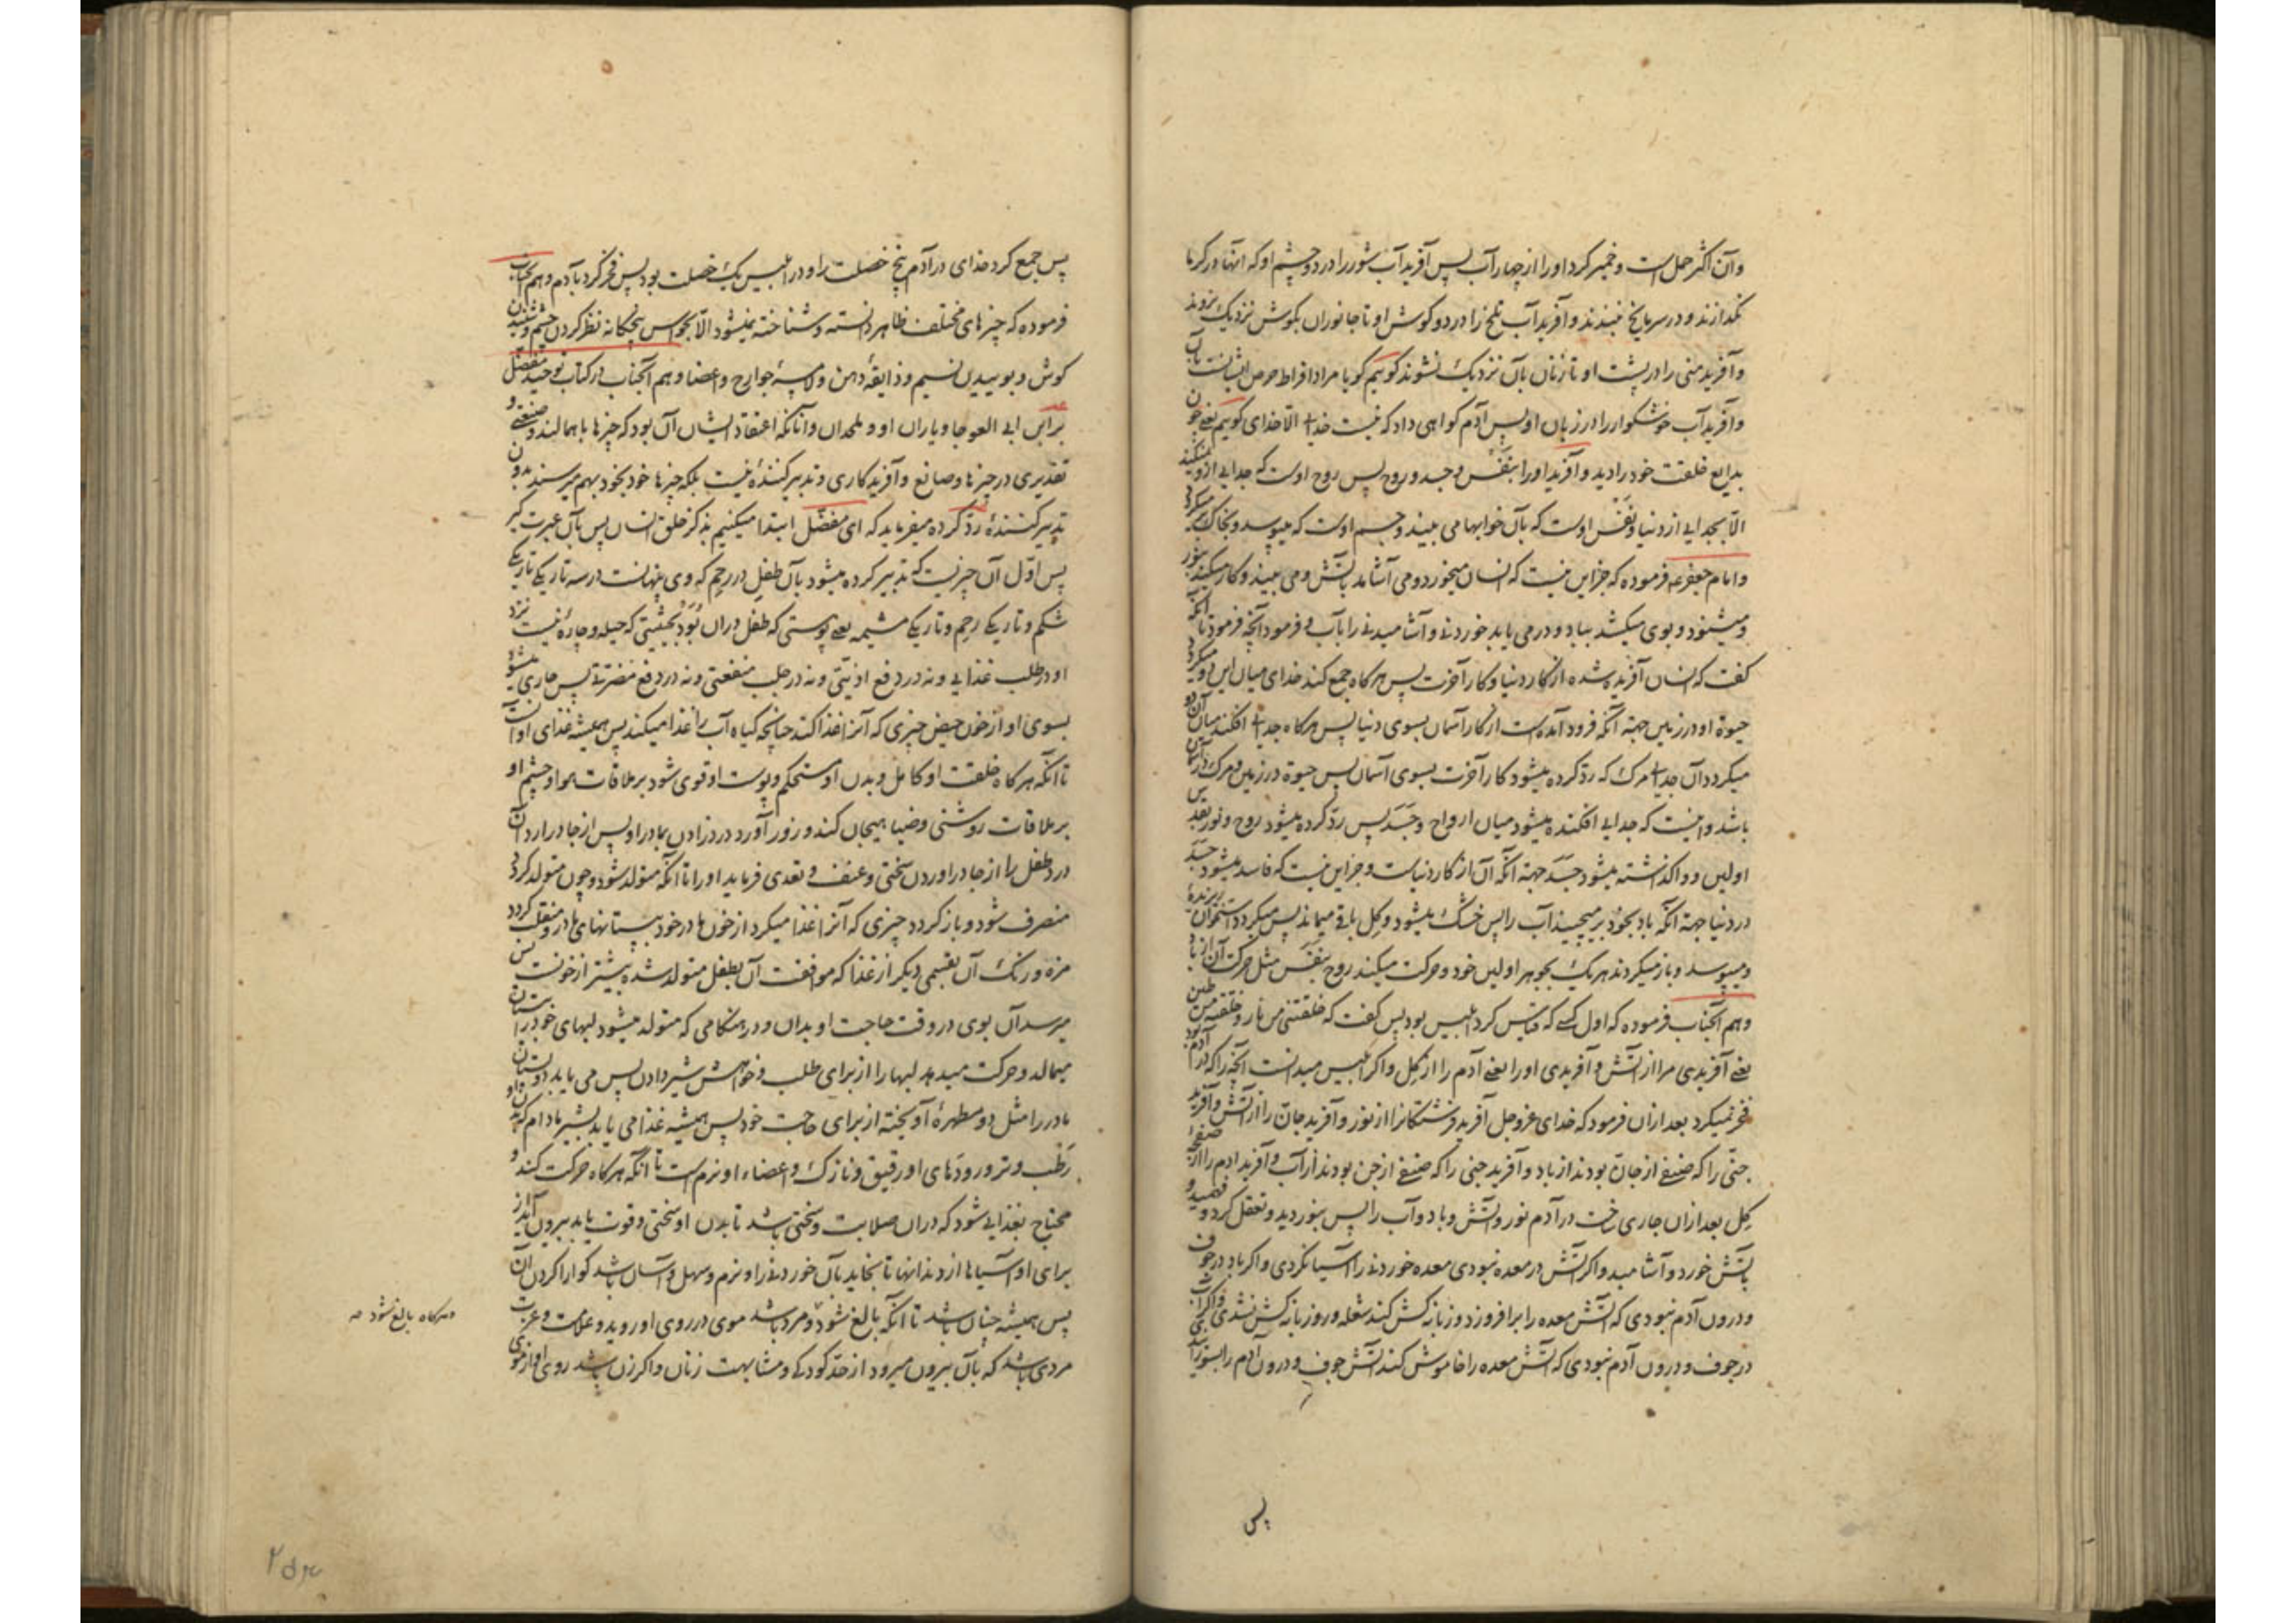 وآن اکثر حمل است و خمیر کرد او را از چهار آب پس آفرید آب شور را در دو چشم او که انها در کرما
نکدازند و در سرما یخ نبندند و آفرید آب تلخ را در دو کوش او تا جانوران بکوش نزدیک نروند
وآفرید منی را در پشت او تا زنان بآن نزدیک نشوند کویم کویا مراد افراط حرص ایشانست بآن
وآفرید آب خوشکوار را در زبان او پس آدم کواهی داد که نیست خدا الّا خدای کویم یعنے چون
بدایع خلقت خود را دید و آفرید او را بنفس و جسد و روح پس روح اوست که جدایی ازو نمیکند
الّا بجدایی از دنیا و نفس اوست که بآن خوابها می بیند و جسم اوست که میپوسد و بخاک میکردد
وامام جعفر ع فرموده که جز این نیست که انسان میخورد و می آشامد بآتش و می بیند و کار میکند بنور
ومیشنود و بوی میکشد بباد و در می یابد خوردنے و آشامیدنے را بآب و فرمود آنچه فرمود تا آنکه
کفت که انسان آفریده شده از کار دنیا و کار آخرت پس هرکاه جمع کند خدای میان این دو میکردد
حیوة او در زمین جهة آنکه فرود آمده است از کار آسمان بسوی دنیا پس هرکاه جدا افکند میان آن دو
میکردد آن جدا مرک که ردّ کرده میشود کار آخرت بسوی آسمان پس حیوة در زمین و مرک در آسمان
باشد و اینست که جدایی افکنده میشود میان ارواح و جسد پس ردّ کرده میشود روح و نور بقدس
اولین و واکذاشته میشود جسد جهة آنکه آن از کار دنیاست و جز این نیست که فاسد میشود جسد
در دنیا جهة آنکه باد بخود برمیچیند آب را پس خشک میشود و کل باقے میماند پس میکردد استخوان ریزنده
ومیپوسد و باز میکردند هریک بجوهر اولین خود و حرکت میکند روح بنفس مثل حرکت آن از باد
وهم آنجناب فرموده که اول کسے که قیاس کرد ابلیس بود پس کفت که خلقتنی من نار و خلقته من طین
یعنے آفریدی مرا از آتش و آفریدی او را یعنے آدم را از کل و اکر ابلیس میدانست آنچه را که در آدم بود
فخر نمیکرد بعد ازان فرمود که خدای عزوجل آفرید فرشتکانرا از نور و آفرید جانّ را از آتش و آفرید
جنّی را که صنفے از جانّ بودند از باد و آفرید جنی را که صنفے از جن بودند از آب و آفرید ادم را از صفحهٔ
کل بعد ازان جاری ساخت در آدم نور و آتش و باد و آب را پس بنور دید و تعقل کرد و فهمید و
بآتش خورد و آشامید و اکر آتش در معده نبودی معده خوردنے را آسیا نکردی و اکر باد در جوف
ودرون آدم نبودی که آتش معده را برافروزد و زبانه کش کند شعله ور و زبانه کش نشدی و اکر آب
در جوف و درون آدم نبودی که آتش معده را خاموش کند آتش جوف و درون آدم را بسوزاندی
پس
پس جمع کرد خدای در آدم پنج خصلت را و در ابلیس یک خصلت بود پس فخر کرد بآدم وهم آنجناب
فرموده که چیزهای مختلف ظاهر دانسته و شناخته نمیشود الّا بحواس پنجکانه نظر کردن چشم و شنیدن
کوش و بوییدن نسیم و ذایقهٔ دهن و لامسهٔ جوارح و اعضا وهم آنجناب در کتاب توحید مفضل
بر ابن ابی العوجا و یاران او و ملحدان و آنانکه اعتقاد ایشان آن بود که چیزها باهمالند و صنعتے و
تقدیری در چیزها و صانع و آفریدکاری و تدبیر کنندهٔ نیست بلکه چیزها خود بخود بهم میرسند بدون
تدبیر کنندهٔ ردّ کرده میفرماید که ای مفضّل ابتدا میکنیم بذکر خلق انسان پس بآن عبرت کیر
پس اوّل آن چیزیست که تدبیر کرده میشود بآن طفل در رحم که وی پنهانست در سه تاریکے تاریکے
شکم و تاریکے رحم و تاریکے مشیمه یعنے پوستی که طفل دران بود بحیثیتی که حیله و چارهٔ نیست نزد
او در طلب غذایی و نه در دفع اذیّتی و نه در جلب منفعتی و نه در دفع مضرّتے پس جاری میشود
بسوی او از خون حیض چیزی که آنرا غذا کند چنانچه کیاه آب را غذا میکند پس همیشه غذای او آنست
تا آنکه هرکاه خلقت او کامل و بدن او مستحکم و پوست او قوی شود بر ملاقات هوا و چشم او
بر ملاقات روشنی و ضیا هیجان کند و زور آورد درد زادن بمادر او پس از جا درارد آن
درد طفل را از جا دراوردن سختی و عنف و تعدی فرماید او را تا آنکه متولد شود و چون متولد کردد
منصرف شود و باز کردد چیزی که آنرا غذا میکرد از خون مادر خود بپستانهای مادر و منقلب کردد
مزه و رنک آن بقسمی دیکر از غذا که موافقت آن بطفل متولد شده بیشتر از خونست پس
میرسد آن بوی در وقت حاجت او بدان و در هنکامی که متولد میشود لبهای خود را بزبان
میمالد و حرکت میدهد لبها را از برای طلب و خواهش شیر دادن پس می یابد دو پستان
مادر را مثل دو مطهرهٔ آویخته از برای حاجت خود پس همیشه غذا می یابد بشیر مادام که بدن او
رطب و تر و رودهای او رقیق و نازک و اعضاء او نرم است تا آنکه هرکاه حرکت کند و
محتاج بغذایی شود که دران صلابت و سختی باشد تا بدن او سختی و قوت یابد بیرون آید از
برای او آسیاها از دندانها تا بخاید بآن خوردنے را و نرم و سهل و آسان باشد کوارا کردن آن
پس همیشه چنان باشد تا آنکه بالغ شود و مرد باشد موی در روی او روید و علامت و عزت
مردی باشد که بآن بیرون میرود از حدّ کودکے و مشابهت زنان و اکر زن باشد روی او از موی
وهرکاه بالغ شود صه